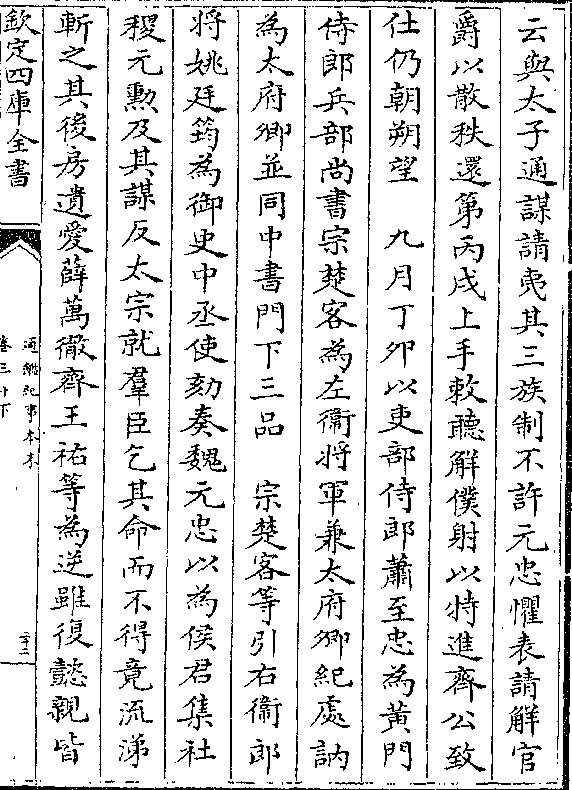 云與太子通謀請夷其三族制不許元忠懼表請解官
爵以散秩還第丙戌上手敕聽解僕射以特進齊公致
仕仍朝朔望　九月丁卯以吏部侍郎蕭至忠為黃門
侍郎兵部尚書宗楚客為左衛將軍兼太府卿紀處訥
為太府卿並同中書門下三品　宗楚客等引右衛郎
將姚廷筠為御史中丞使劾奏魏元忠以為侯君集社
稷元勲及其謀反太宗就羣臣乞其命而不得竟流涕
斬之其後房遺愛薛萬徹齊王祐等為逆雖復懿親皆
欽定四庫全書
通鑑紀事本末
卷三十下